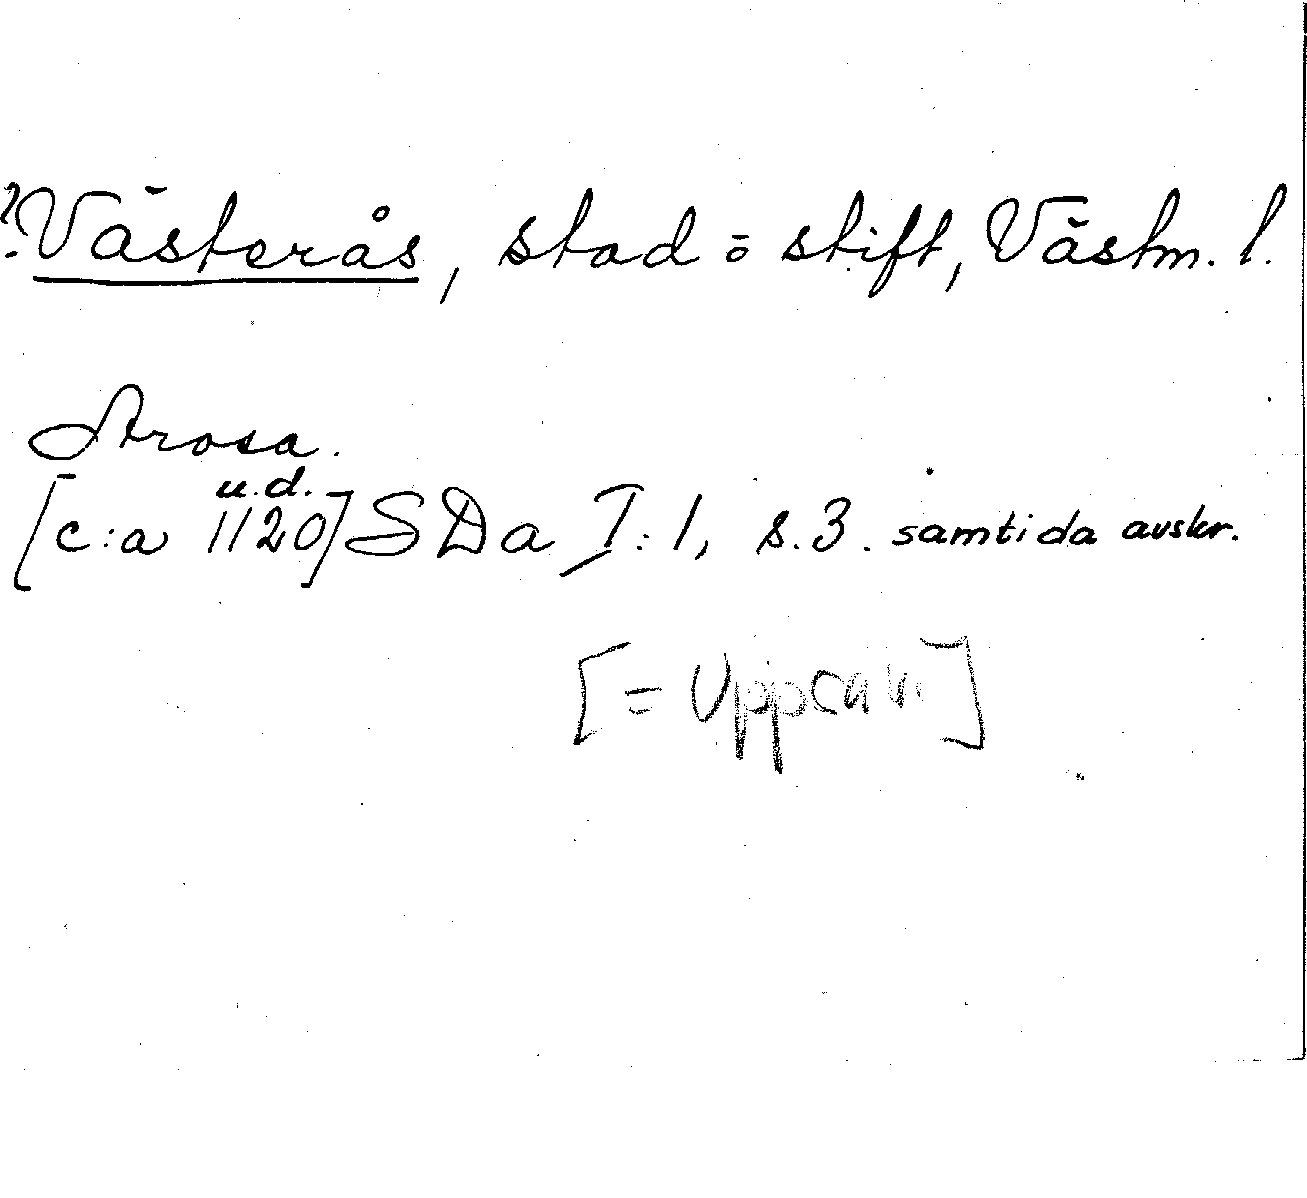 ? Västerås, stad o stift, Västm. l.
Arosa.
u.d.
[c:a 1120] SDa I:1, s.3. samtida avskr.
[=